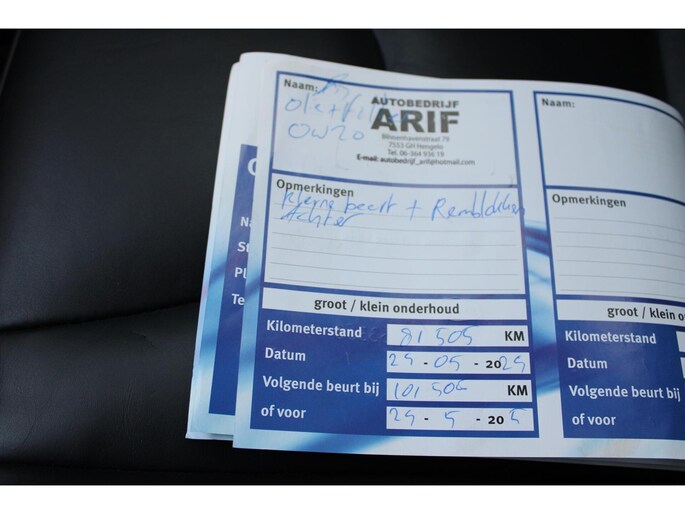 Naam:
Olie + filter
OW20
AUTOBEDRIJF
ARIF
7553 GH Hengelo
Tel. 06-364 936 19
E-mail: autobedrijf_arif@hotmail.com
Opmerkingen
kleine beurt + Remblokken
Achter
groot / klein onderhoud
Kilometerstand 81 505 KM
Datum 29 - 05 - 2025
Volgende beurt bij 101 506 KM
of voor - 5 - 20
Naam:
Opmerkingen
groot / klein o
Kilometerstand
Datum
Volgende beurt bij
of voor
Na
St
Pl
Te